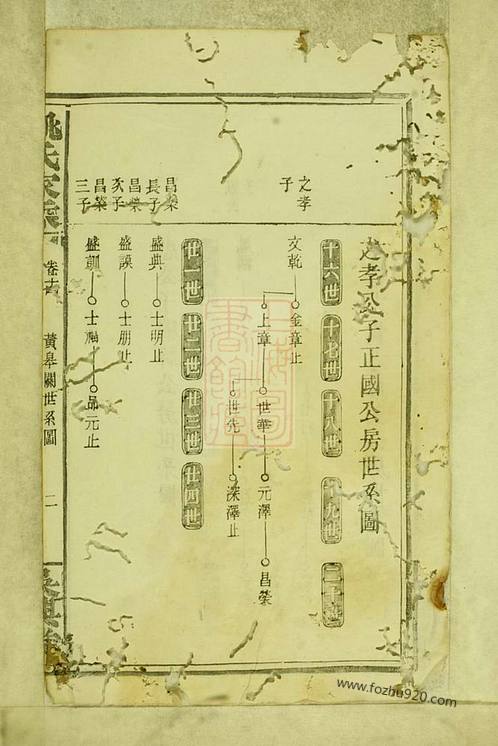 之孝公子正國公房世系圖
十六世 十七世 十八世 十九世 二十世
之孝子
文乾 金章止
上章 世華 元澤 昌榮
世先 深澤止
廿一世 廿二世 廿三世 廿四世
昌榮長子
盛典 士明止
昌榮次子
盛謨 士朋止
昌榮三子
盛訓 士 品元止
氏家乘 卷 黃皋關世系圖 二
www.fozhu920.com